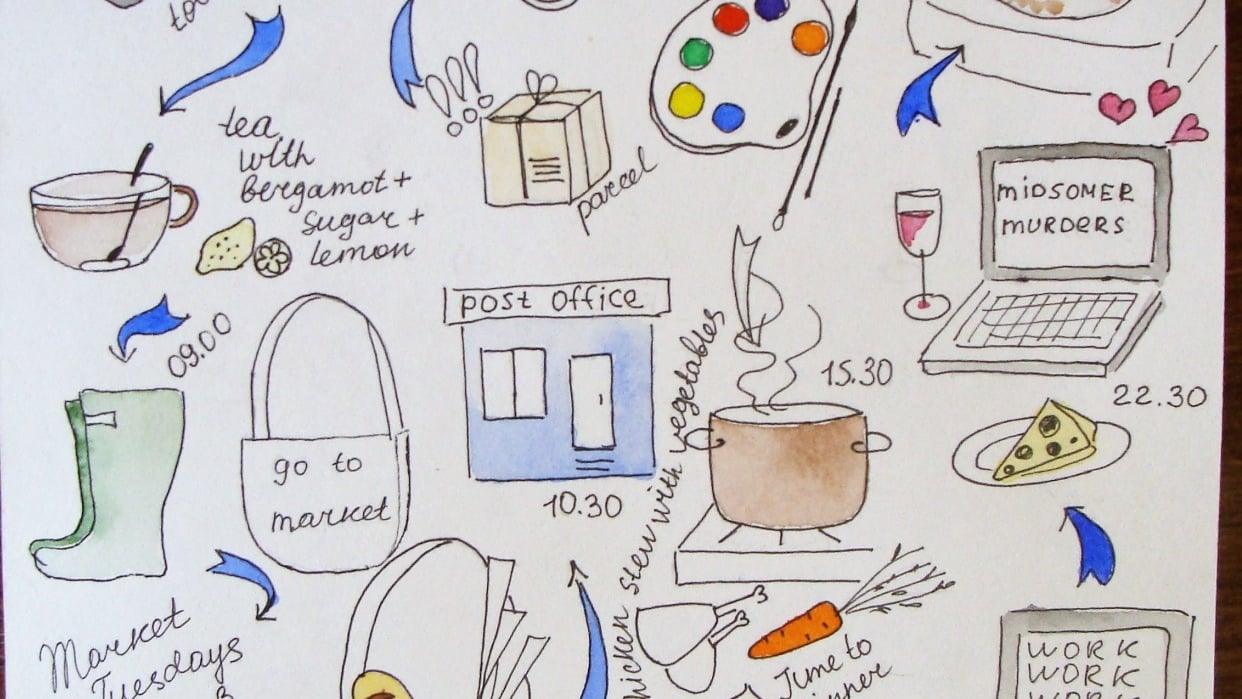 tea
with
bergamot +
sugar +
lemon
parcel
09.00
go to
market
post office
10.30
stew with vegetables
15.30
MIDSOMER
MURDERS
22.30
Market
Tuesdays
Time to
WORK
WORK